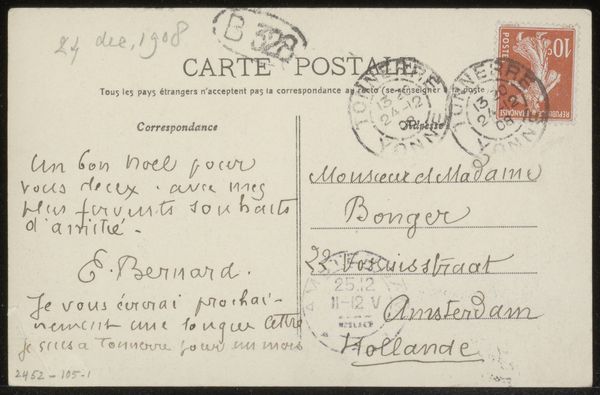 24 dec, 1908
B 328
CARTE POSTALE
Tous les pays étrangers n'acceptent pas la correspondance au recto (se renseigner à la poste
Correspondance
Adresse
10c
POSTES
REPUBLIQUE FRANÇAISE
TONNERRE
24-12
08
YONNE
TONNERRE
YONNE
Un bon Noel pour
vous deux. avec mes
plus fervents souhaits
d'amitié.
E. Bernard.
Je vous écrirai prochai-
nement une longue lettre
je suis à Tonnerre pour un mois
Monsieur et Madame
Bonger
Vossiusstraat
Amsterdam
Hollande
25.12
11-12 V
2452-105-1